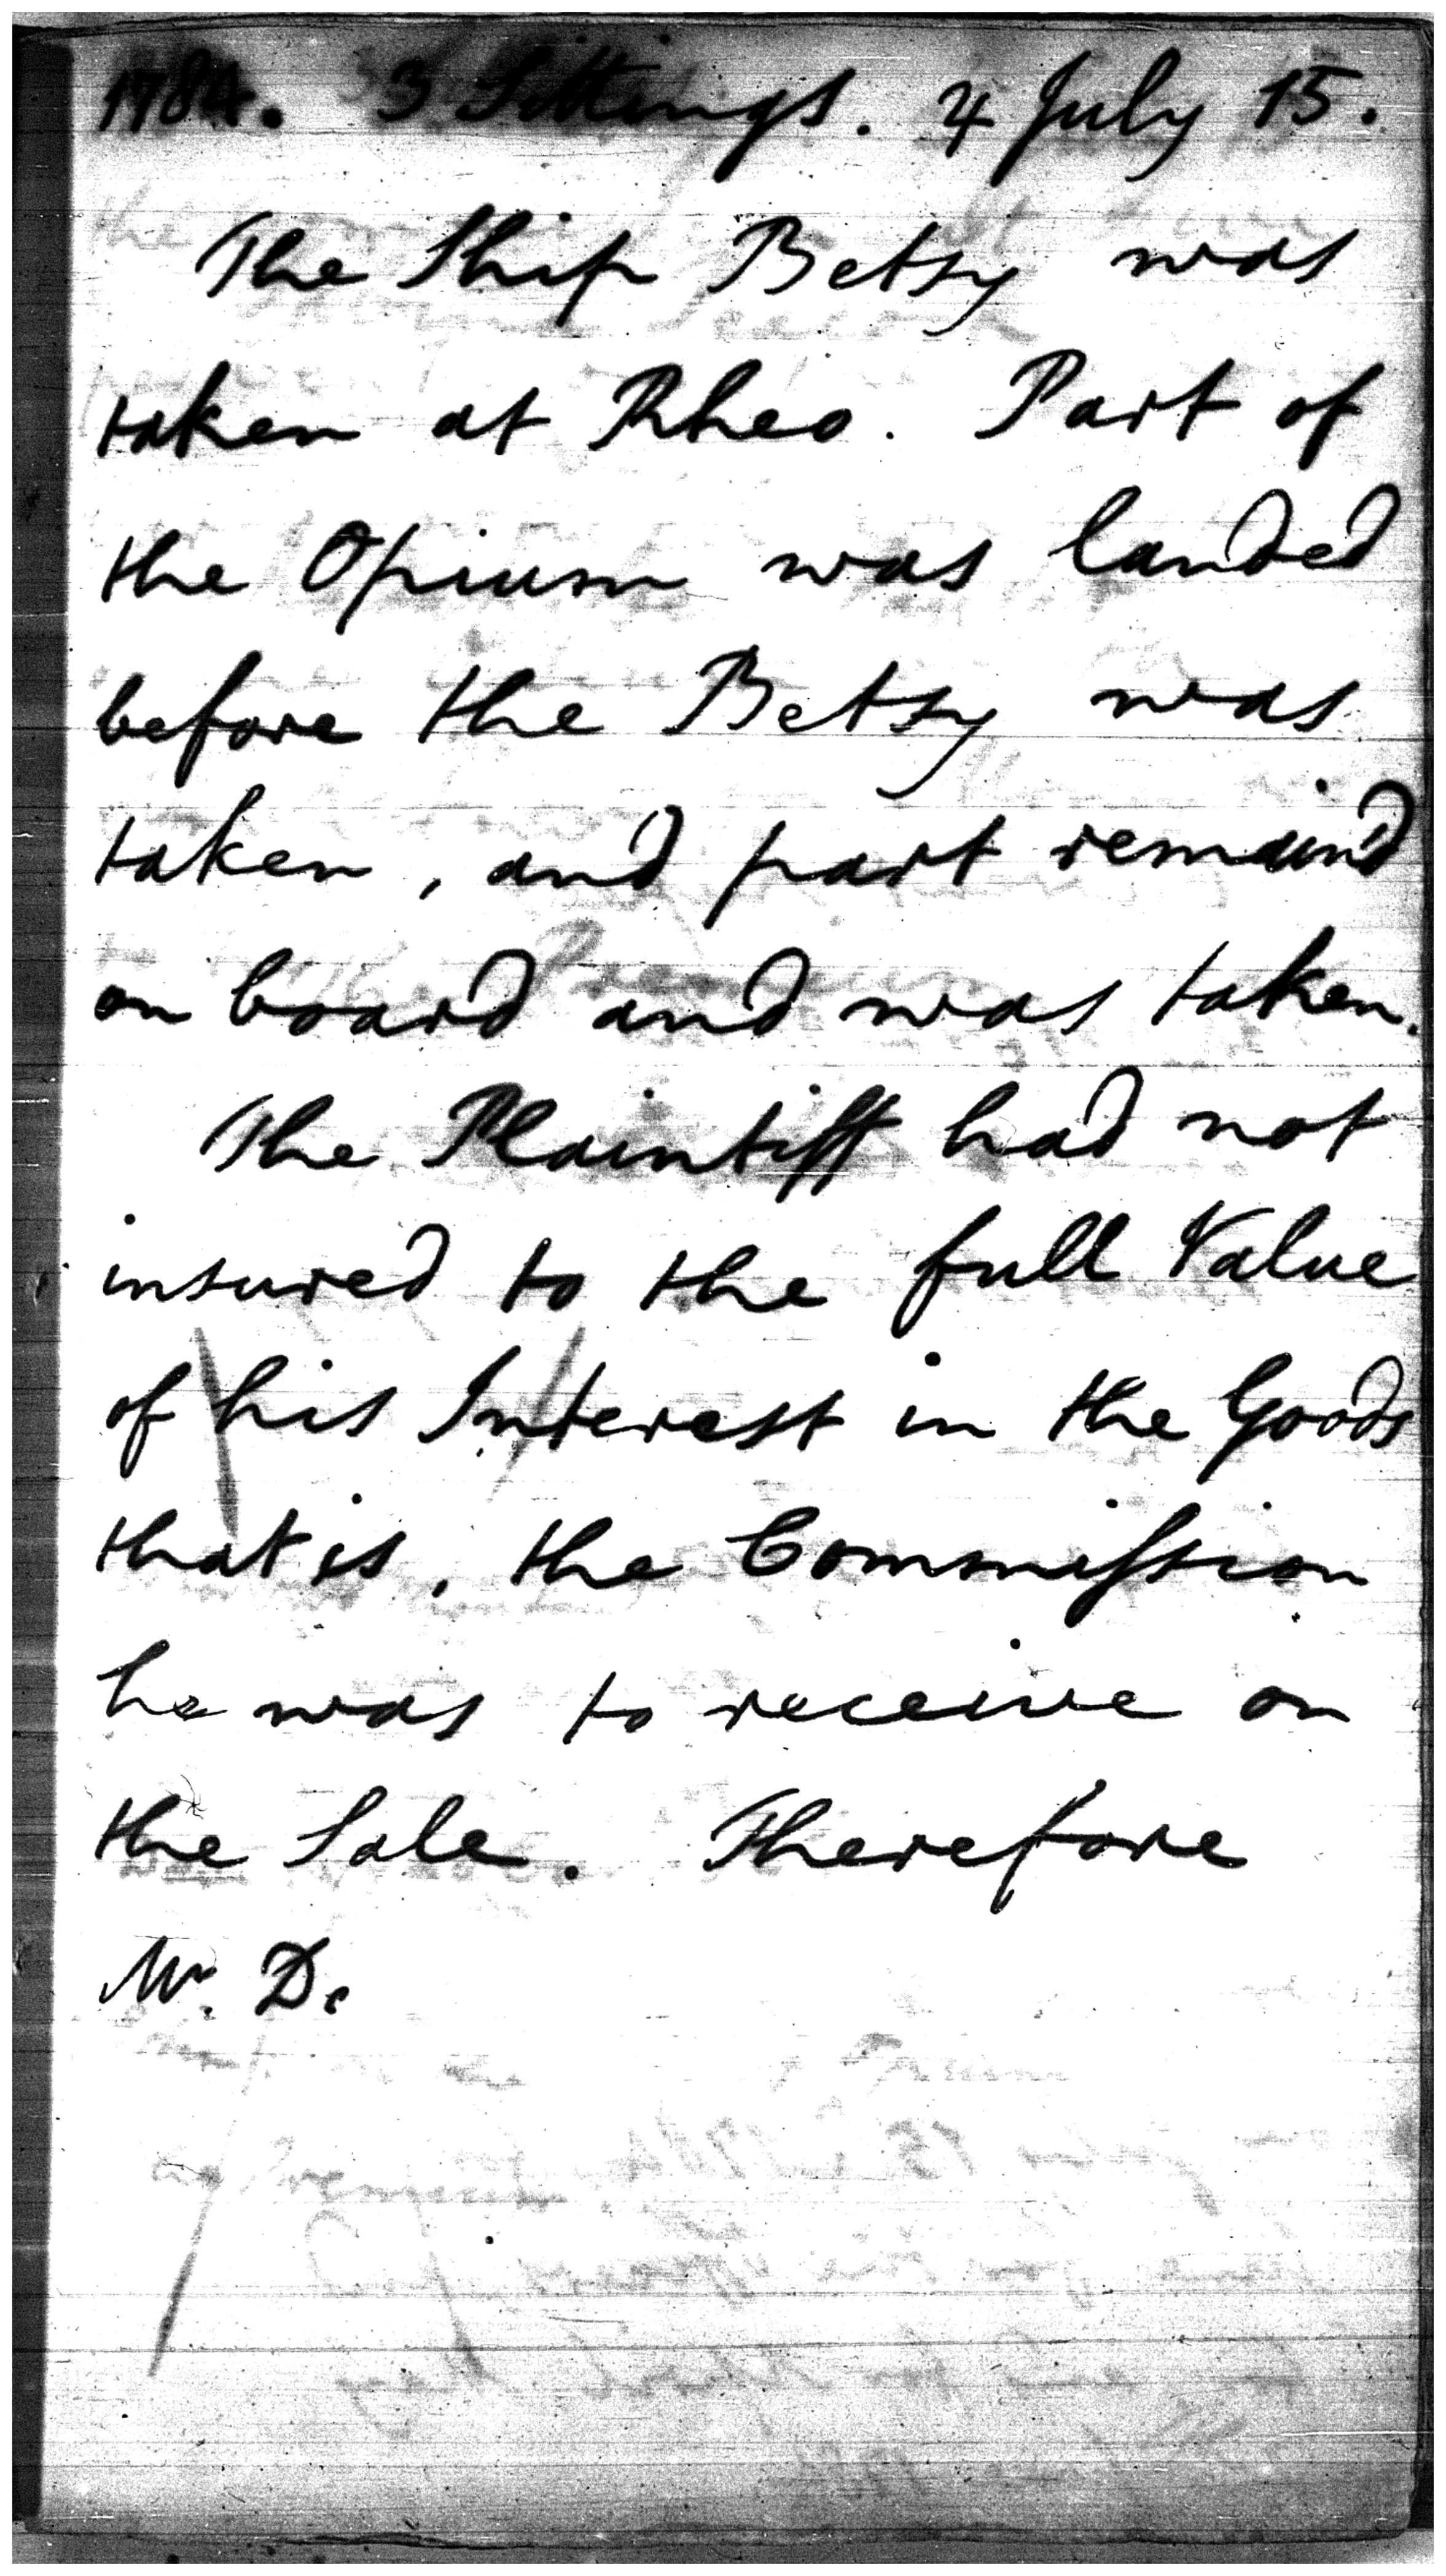 1784. 3 Sittings. 4 July 15.
The Ship Betsy was
taken at Rheo. Part of
the Opium was landed
before the Betsy was
taken, and part remain'd
on board and was taken.
The Plaintiff had not
insured to the full Value
of his Interest in the Goods
that is, the Commiſsion
he was to receive on
the Sale. Therefore
Mr. D.